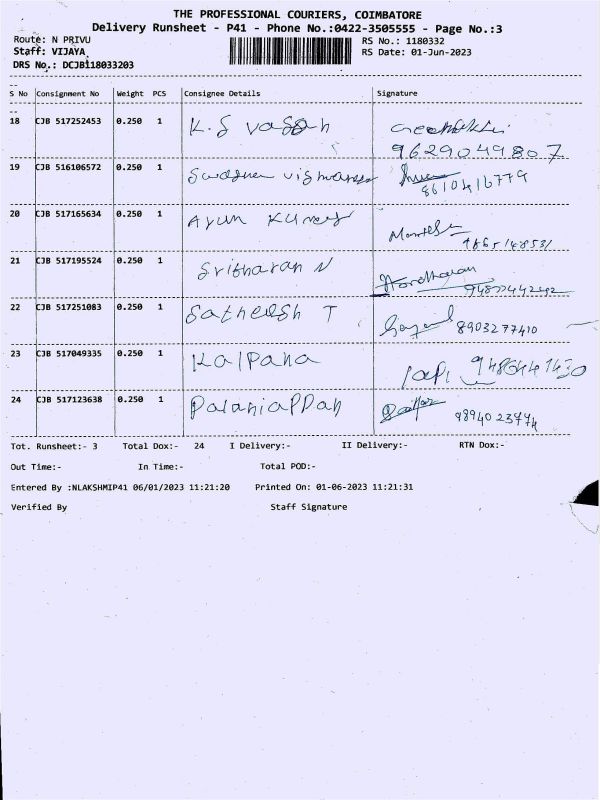 THE PROFESSIONAL COURIERS, COIMBATORE
Delivery Runsheet - P41 - Phone No.:0422-3505555 - Page No.:3
Route: N PRIVU RS No.: 1180332
Staff: VIJAYA RS Date: 01-Jun-2023
DRS No.: DCJB118033203
S No Consignment No Weight PCS Consignee Details Signature
18 CJB 517252453 0.250 1 K.S
9629049807
19 CJB 516106572 0.250 1
8610416779
20 CJB 517165634 0.250 1 Arun Kumar
21 CJB 517195524 0.250 1 Sritharan N
22 CJB 517251083 0.250 1 Satheesh T 8903277410
23 CJB 517049335 0.250 1 Kalpana
24 CJB 517123638 0.250 1 Palaniappan
Tot. Runsheet:- 3 Total Dox:- 24 I Delivery:- II Delivery:- RTN Dox:-
Out Time:- In Time:- Total POD:-
Entered By :NLAKSHMIP41 06/01/2023 11:21:20 Printed On: 01-06-2023 11:21:31
Verified By Staff Signature